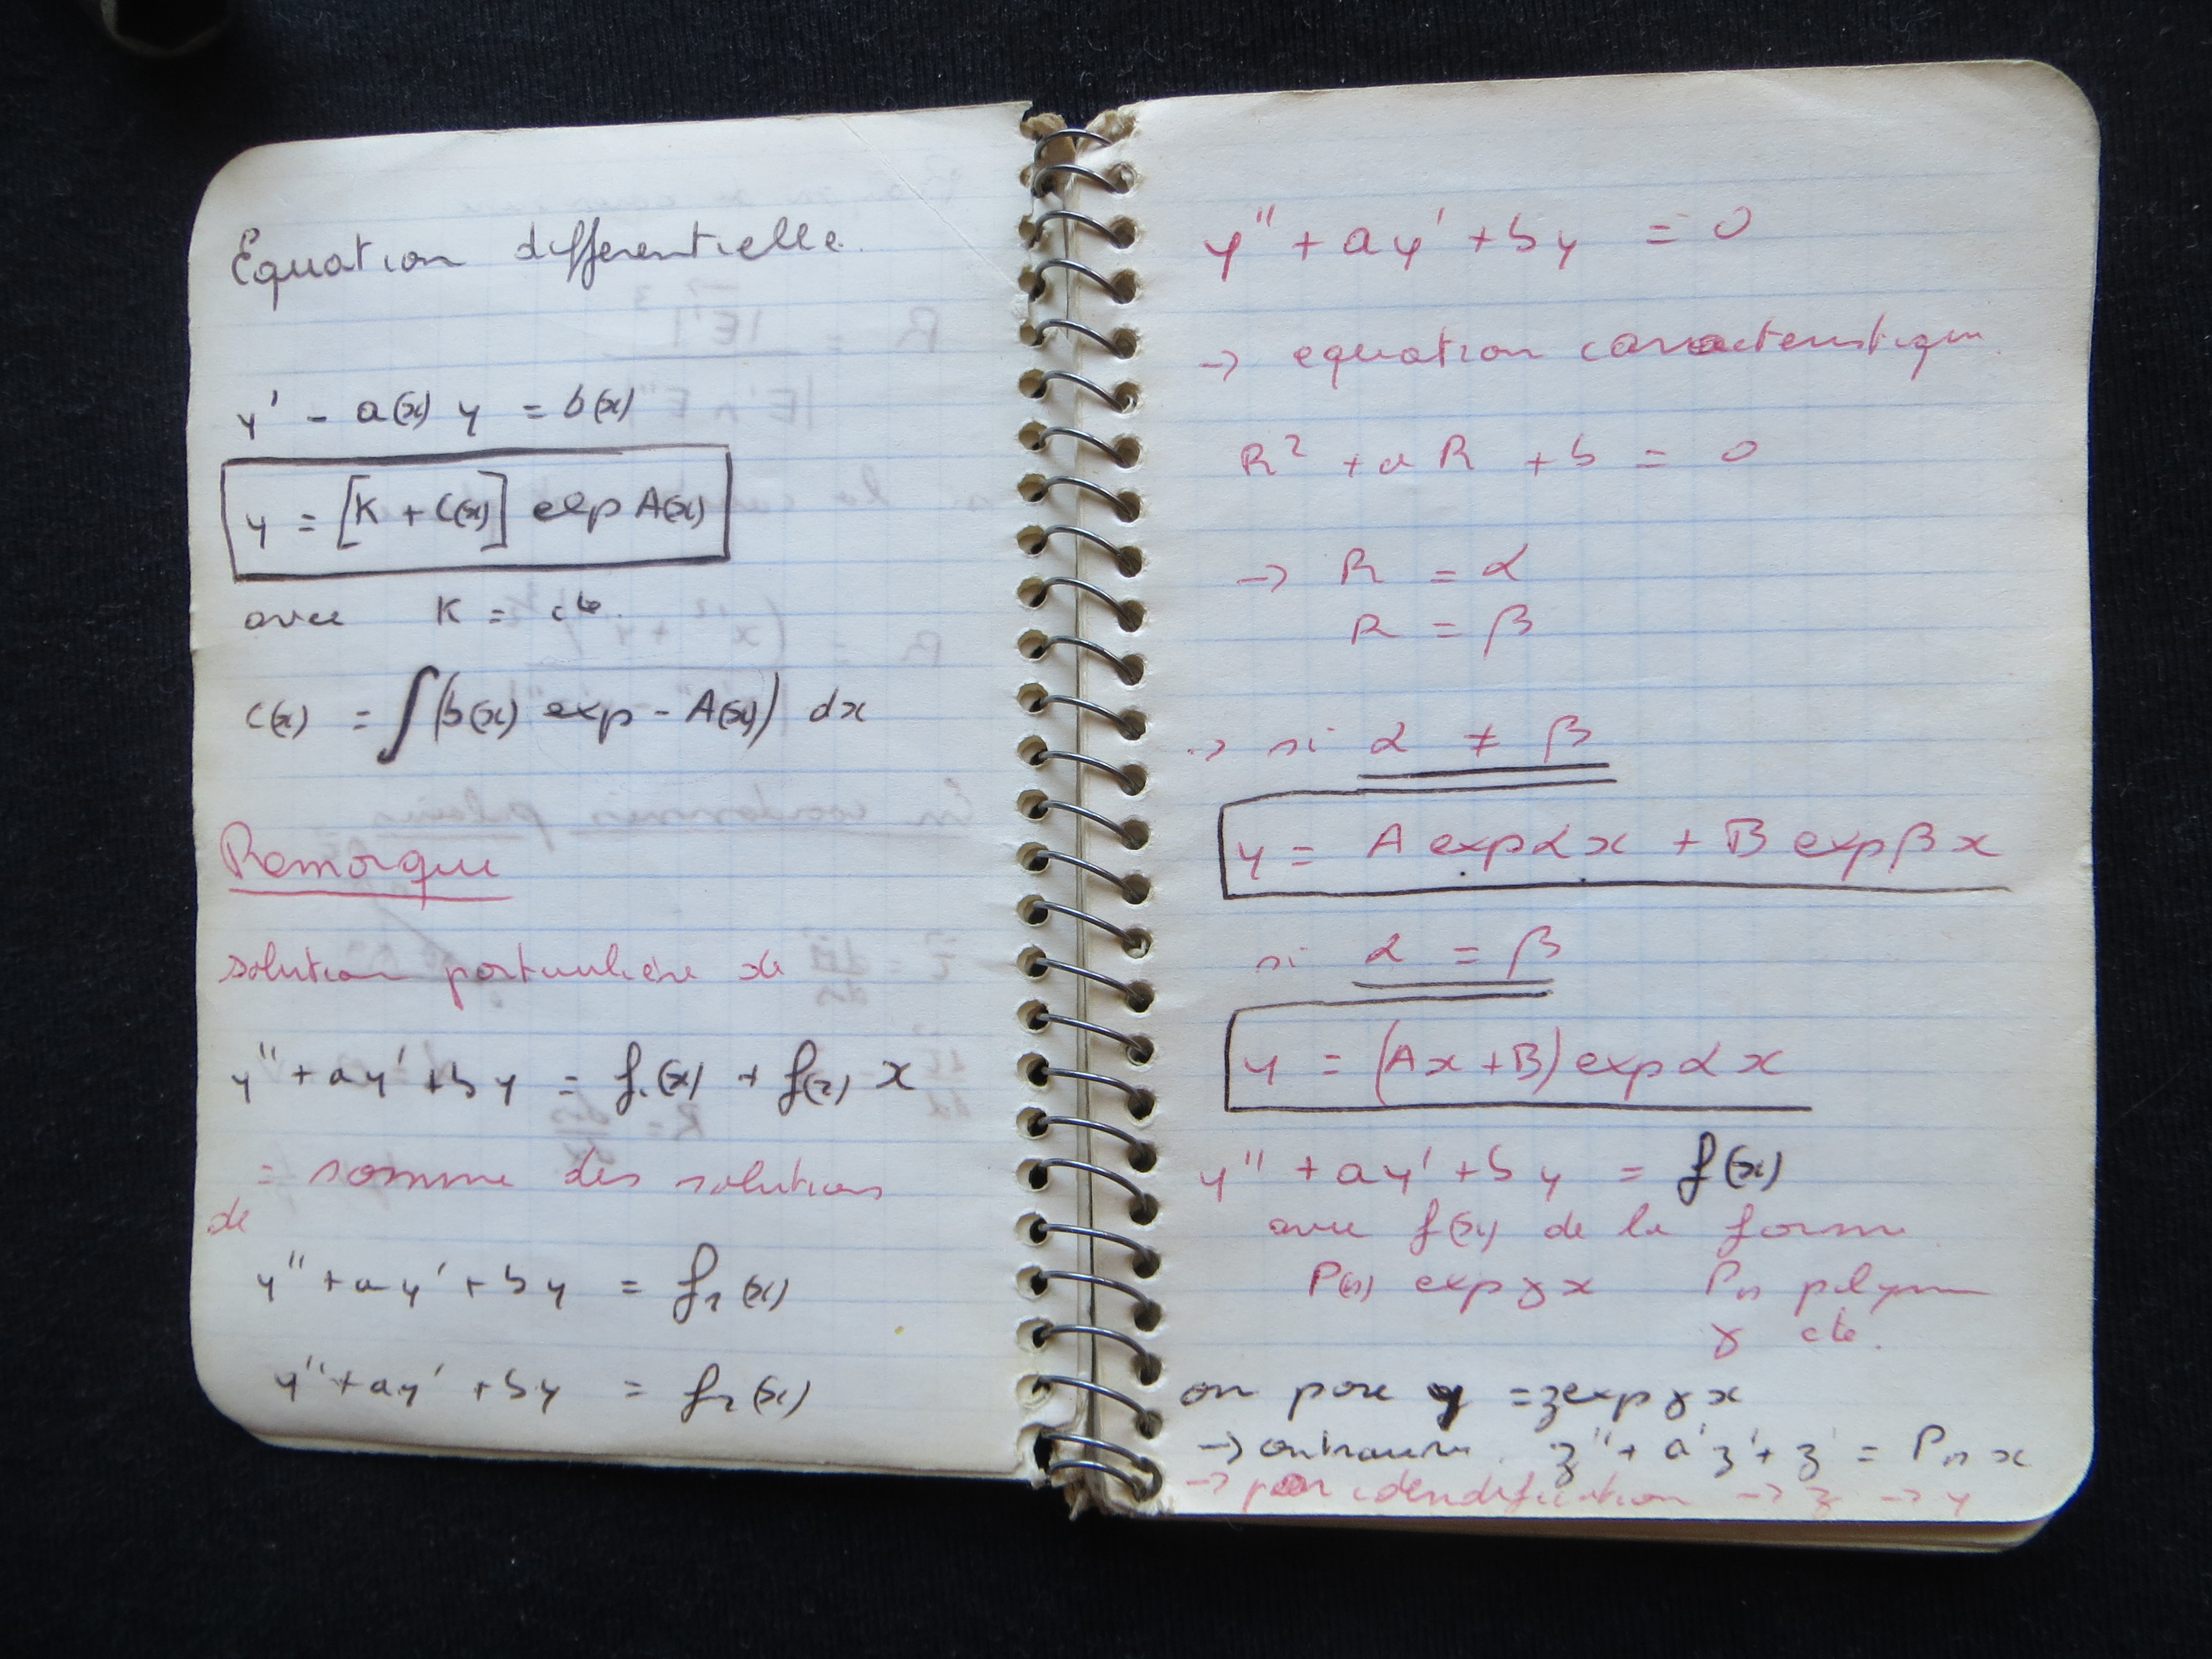 Equation differentielle.
y' - a(x) y = b(x)
y = [K + C(x)] exp A(x)
avec K = cte.
C(x) = ∫(b(x) exp - A(x)) dx
Remarque
solution particulière de
y'' + ay' + by = f₁(x) + f(x) x
= somme des solutions
de
y'' + ay' + by = f₁(x)
y'' + ay' + by = f₂(x)
y'' + ay' + by = 0
→ equation caracteristique
R² + a R + b = 0
→ R = α
R = β
→ si α ≠ β
y = A exp αx + B exp βx
si α = β
y = (Ax + B) exp αx
y'' + ay' + by = f(x)
avec f(x) de la forme
P(x) exp γx Pn polynm
γ cte.
on pose y = z exp γ x
→ on trouve z'' + a'z' + z = Pn x
→ par idendification → z → y